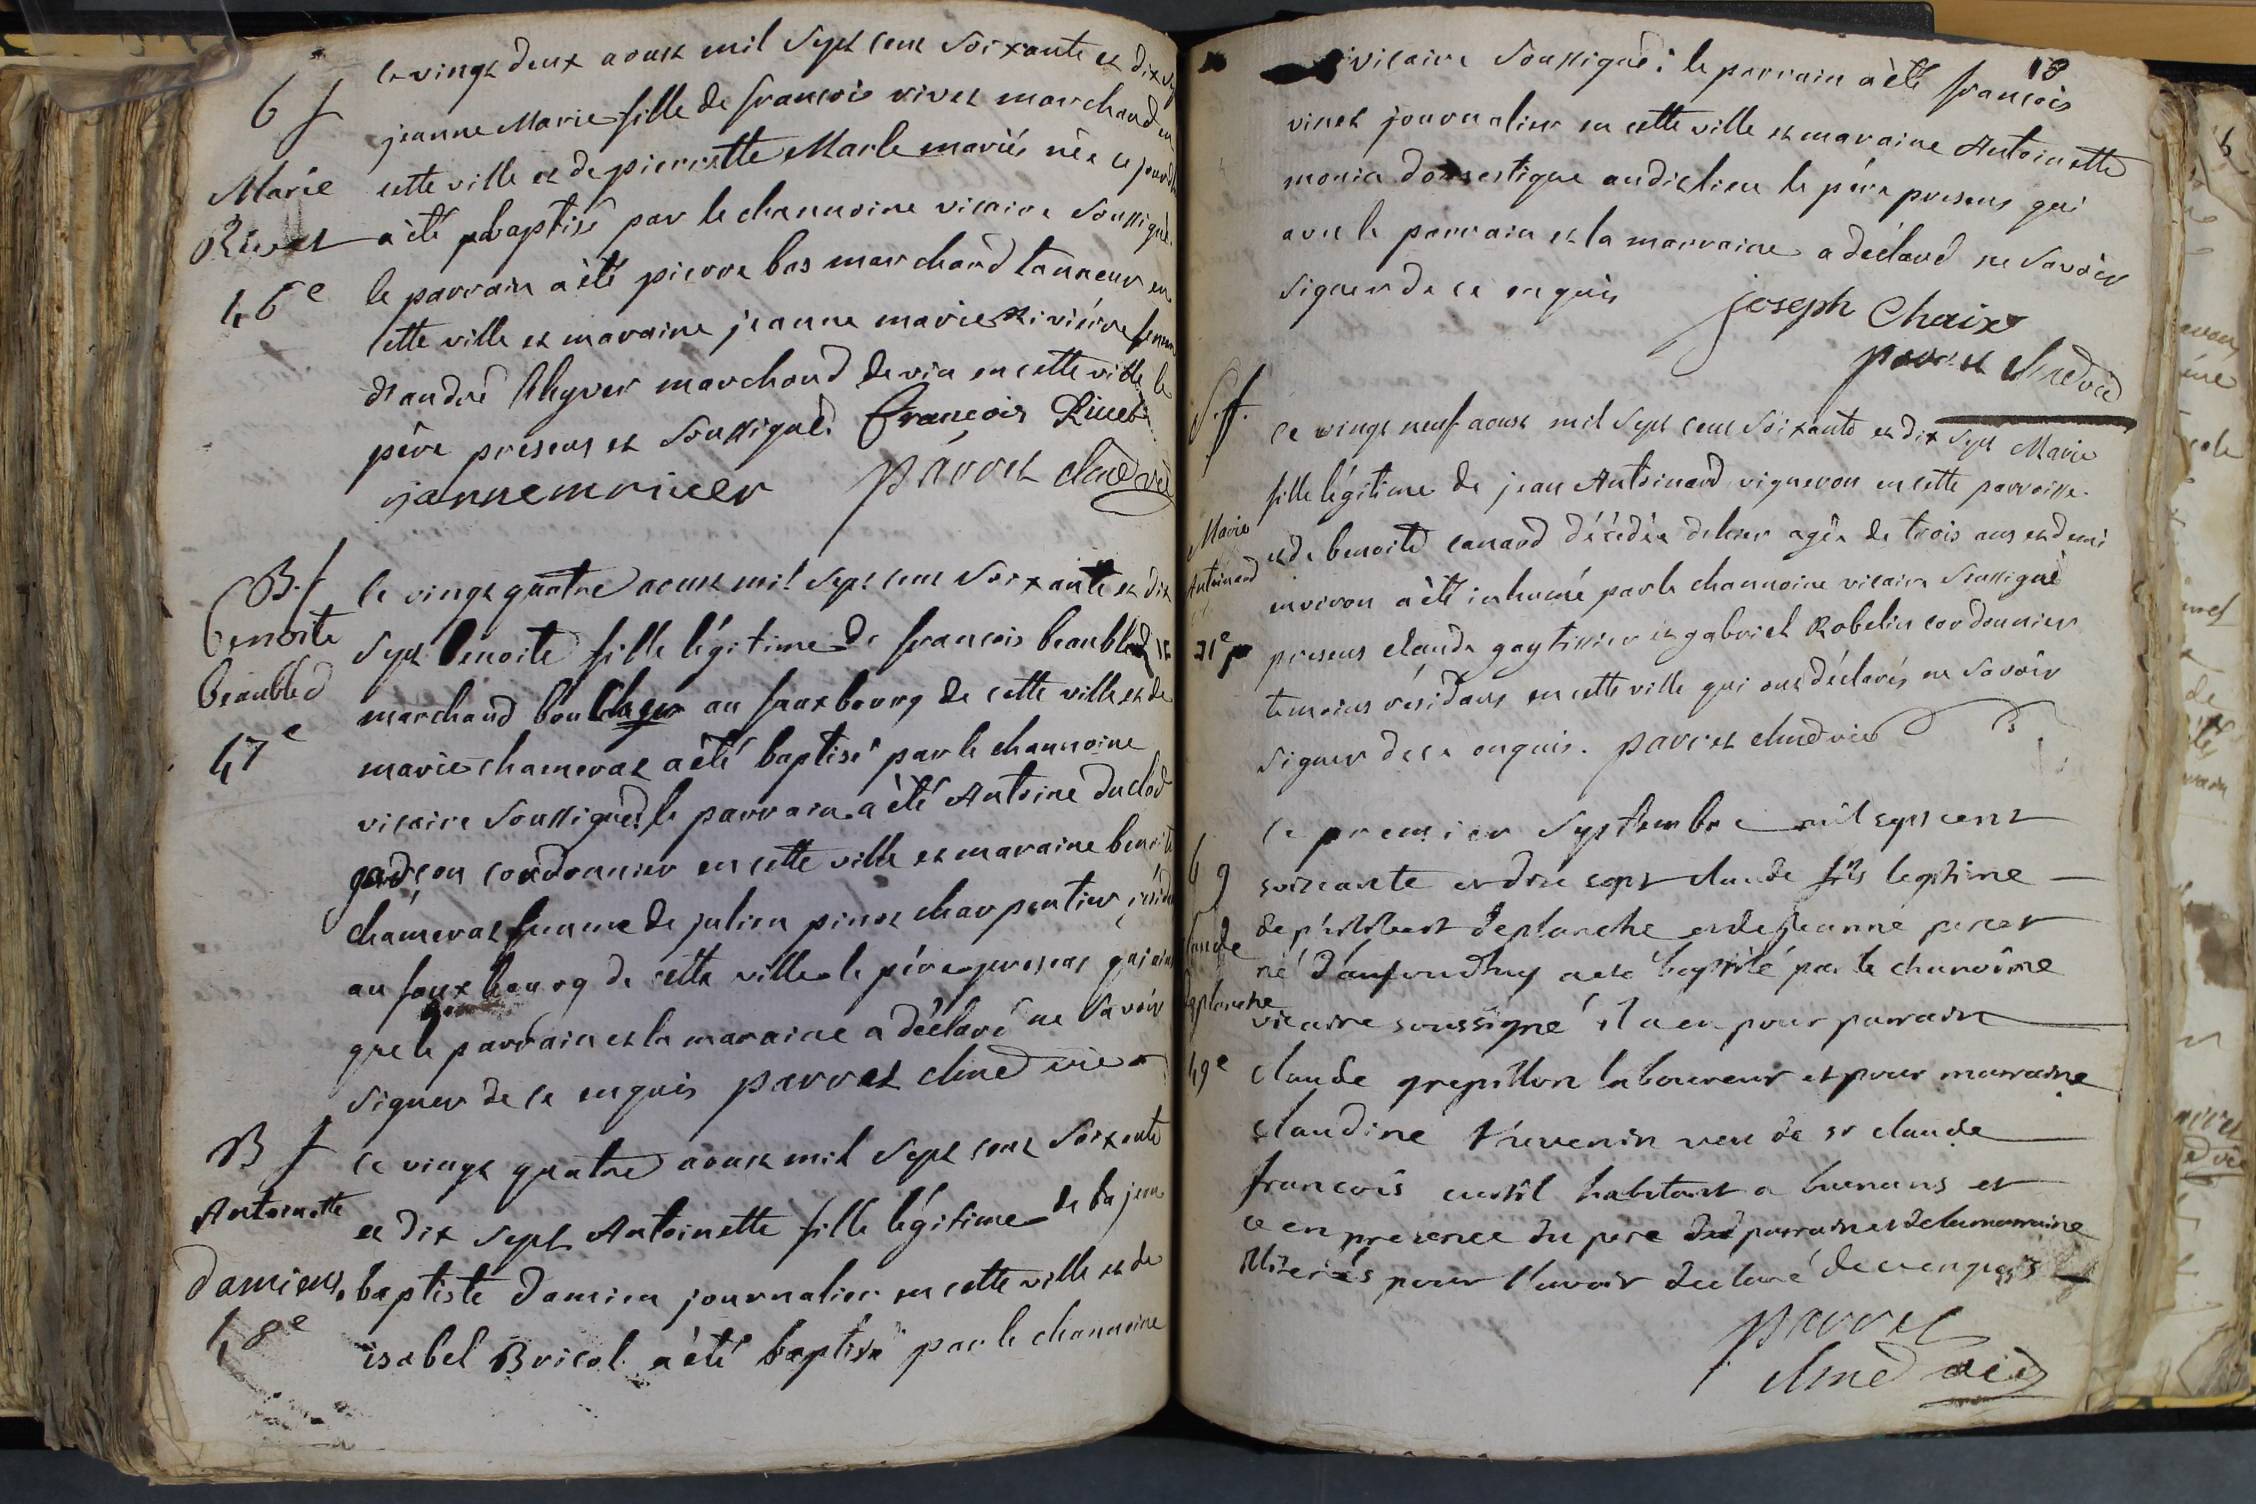 b f
Marie
Rivet
46e
ce vingt deux aoust mil Sept cent Soixante et dix Sept
jeanne Marie fille de françois rivet marchand en
cette ville et de pierrette Marle mariés née ce jourd
a été baptisé par le chanoine vicaire Soussigné
le parrain a été pierre bas marchand tanneur en
cette ville et maraine jeanne marie Rivière femme
d'andré Thyver marchand de vin en cette ville le
père present et Soussigné. François Rivet
parret chne vic
B. f
benoite
beaubled
47e
le vingt quatre aoust mil Sept cent Soixante et dix
Sept benoite fille légitime de françois beaubled
marchand boulanger au fauxbourg de cette ville et de
marie chamerat a été baptisé par le chanoine
vicaire Soussigné. le parrain a été Antoine duclod
garçon cordonnier en cette ville et maraine benoite
chamerat femme de julien pinet charpentier
au fauxbourg de cette ville le père present qui ainsi
que le parrain et la maraine a déclaré ne Savoir
Signer de ce enquis parret chne vic
B f
Antoinette
damiens
48e
ce vingt quatre aoust mil Sept cent Soixante
et dix Sept Antoinette fille légitime de jean
baptiste damien journalier en cette ville et de
isabel Bricol a été baptisé par le chanoine
18
vicaire Soussigné. le parrain a été françois
vinet journalier en cette ville et maraine Antoinette
monin domestique audit lieu le père present qui
avec le parrain et la marraine a déclaré ne Savoir
Signer de ce enquis joseph Chaix
parret chne vic
S. f.
Marie
Antoinard
21e
ce vingt neuf aoust mil Sept cent Soixante et dix Sept Marie
fille légitime de jean Antoinard vigneron en cette parroisse
et de benoite canard décédée d'hier agée de trois ans et demi
environ a été inhumé par le chanoine vicaire Soussigné
presens claude gay tixier et gabriel Robelin cordonnier
temoins résidans en cette ville qui ont déclarés ne Savoir
Signer de ce enquis. parret chne vic
b g
claude
deplanche
49e
ce premier Septembre mil sept cent
soixante et dix sept claude fils legitime
de philibert deplanche et de jeanne perret
né d'aujourdhuy a été baptisé par le chanoine
vicaire soussigné il a eu pour parrain
claude grepillon laboureur et pour marraine
claudine thevenin veu de sr claude
françois habitant a et
ce en presence du pere du parrain et de la marraine
illiterés pour l'avoir declaré de ce enquis
parret
chne vic